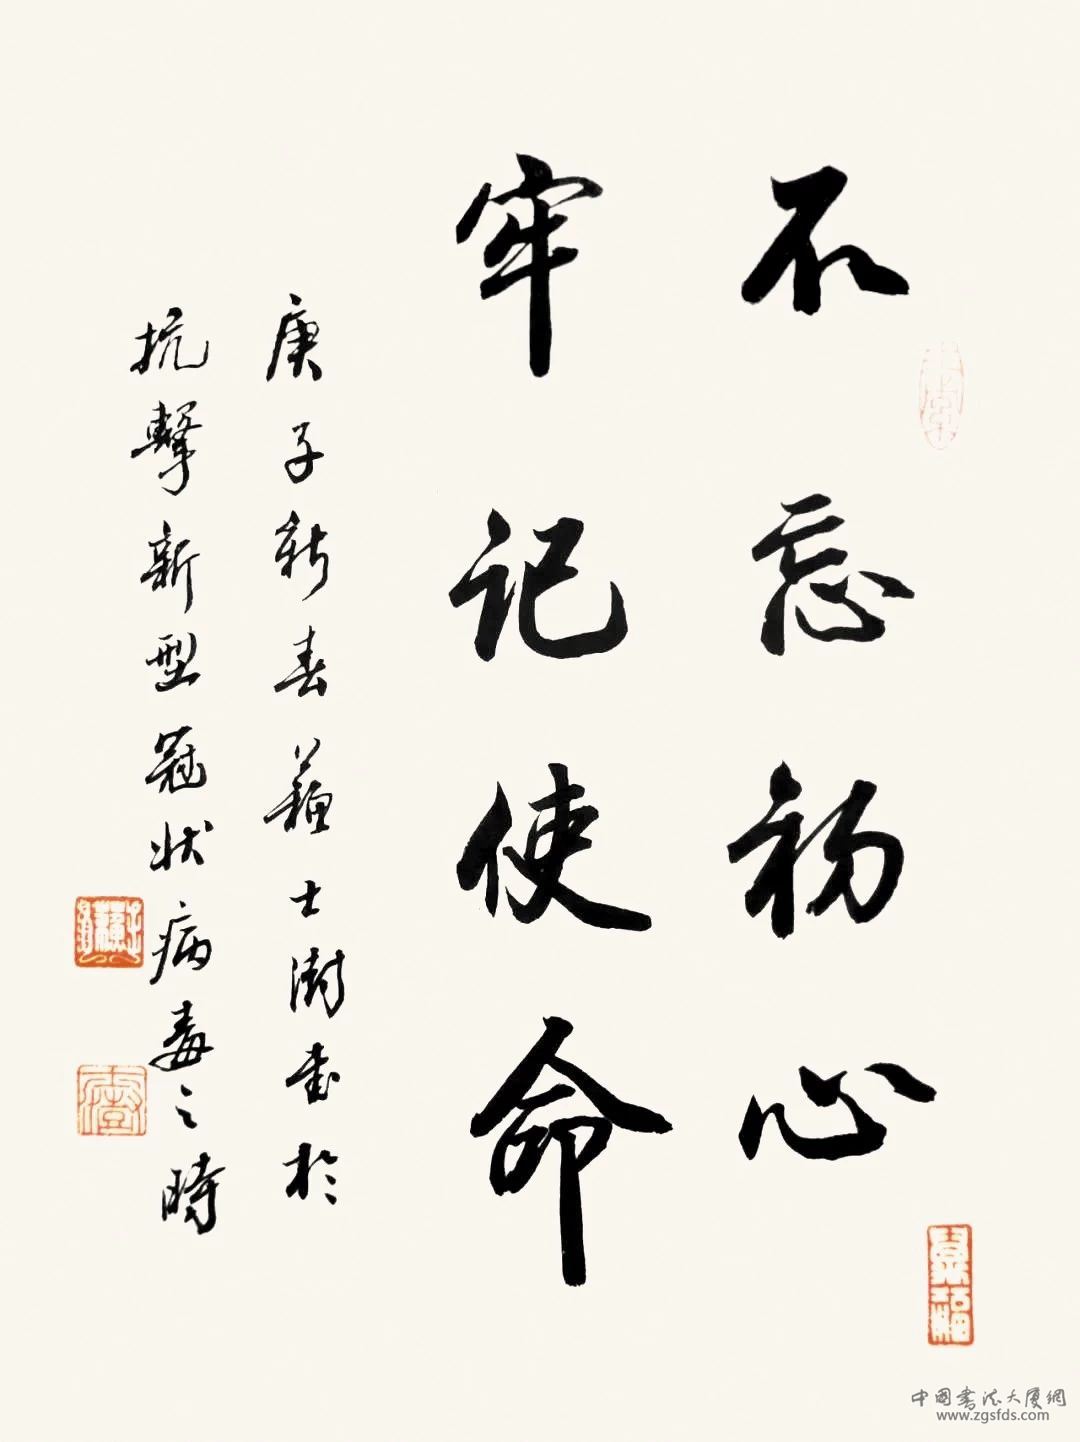 不忘初心
牢记使命
庚子新春苏士澍书於
抗擊新型冠状病毒之時
中国书法大厦網
www.zgsfds.com